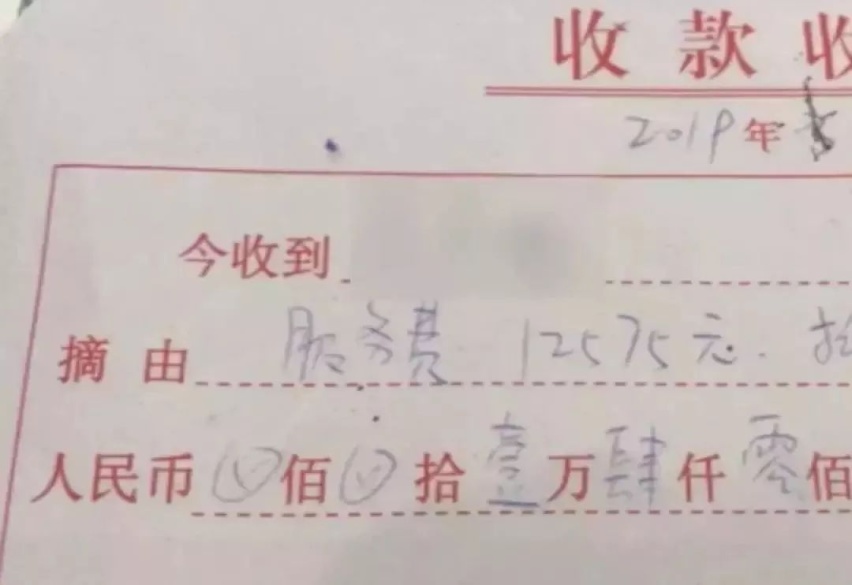 收款收
2019年
今收到
摘由 服务费 12575元.
人民币 佰 拾 壹万肆仟零佰